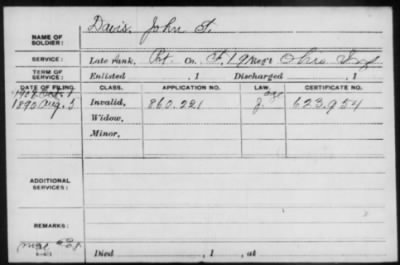 NAME OF SOLDIER: Davis, John
SERVICE: Late rank, Pvt Co. F, 19 Reg't Ohio Inf
TERM OF SERVICE: Enlisted , 1 Discharged , 1
DATE OF FILING. CLASS. APPLICATION NO. LAW. CERTIFICATE NO.
1890 Aug. 5 Invalid, 860.221 623.954
Widow,
Minor,
ADDITIONAL SERVICES:
REMARKS:
Died , 1 , at